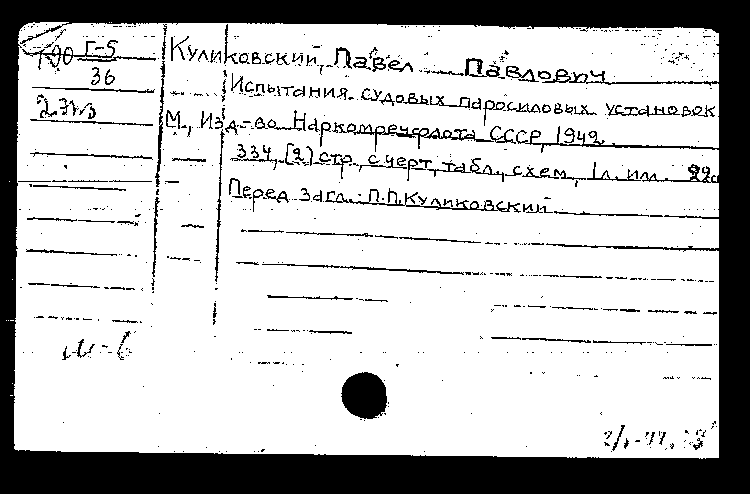 Г-5
36
Куликовский, Павел Павлович
Испытания судовых паросиловых установок
М., Изд-во Наркомречфлота СССР, 1942
334, [2] стр., с черт., табл., схем., 1 л. илл. 22с
Перед загл.: П.П.Куликовский